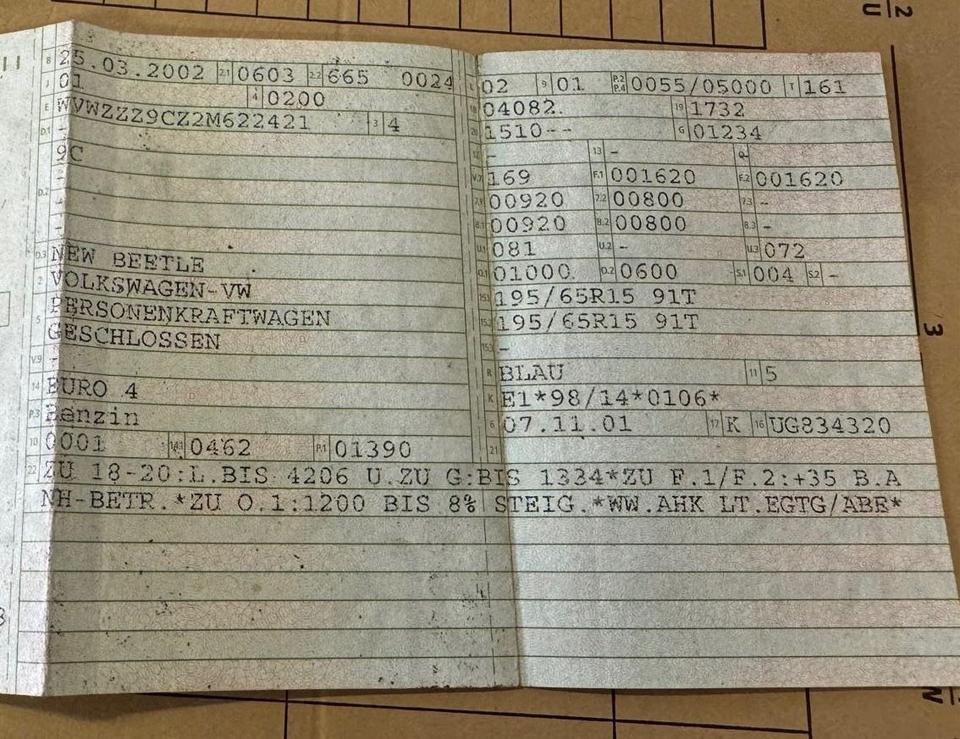 B 25.03.2002 2.1 0603 2.2 665 0024
J 01 4 0200
E WVWZZZ9CZ2M622421 3 4
D.1 -
9C
D.2 -
-
-
-
D.3 NEW BEETLE
2 VOLKSWAGEN-VW
5 PERSONENKRAFTWAGEN
GESCHLOSSEN
V.9 -
14 EURO 4
P.3 Benzin
10 0001 14.1 0462 P.1 01390
L 02 9 01 P.2 P.4 0055/05000 T 161
18 04082. 19 1732
20 1510-- G 01234
12 - 13 - Q -
V.7 169 F.1 001620 F.2 001620
7.1 00920 7.2 00800 7.3 -
8.1 00920 8.2 00800 8.3 -
U.1 081 U.2 - U.3 072
O.1 01000 O.2 0600 S.1 004 S.2 -
15.1 195/65R15 91T
15.2 195/65R15 91T
15.3 -
R BLAU 11 5
K E1*98/14*0106*
6 07.11.01 17 K 16 UG834320
21
22 ZU 18-20:L.BIS 4206 U.ZU G:BIS 1334*ZU F.1/F.2:+35 B.A
NH-BETR.*ZU O.1:1200 BIS 8% STEIG.*WW.AHK LT.EGTG/ABE*
2
U
3